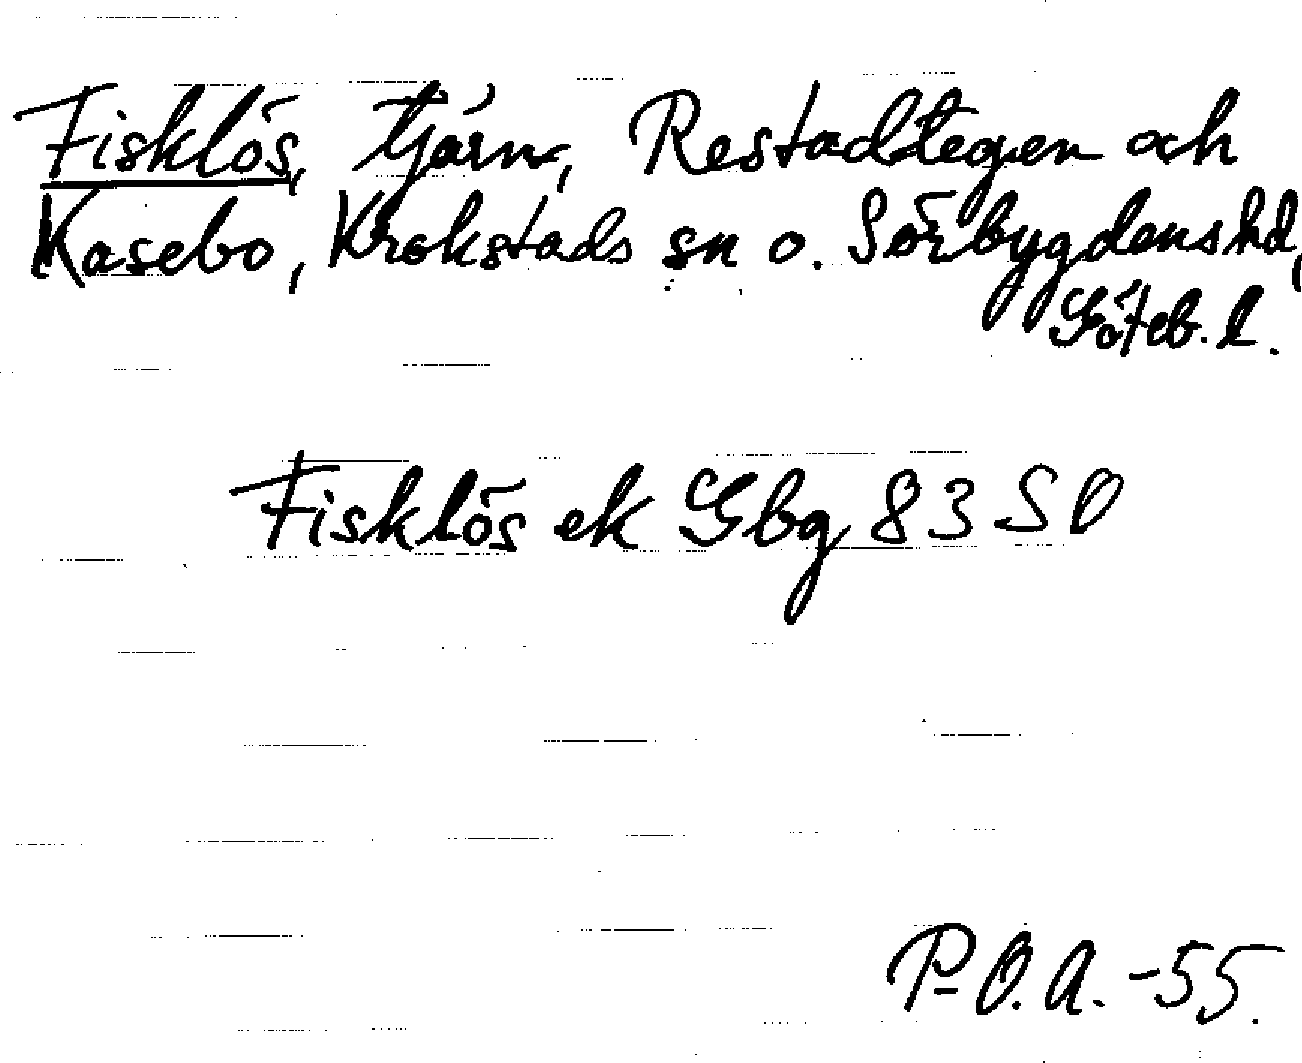 Fisklös, tjärn, Restadtegen och
Kasebo, Krokstads sn o. Sörbygdens hd,
Göteb. l.
Fisklös ek Gbg 83 SO
P-O.A. -55.